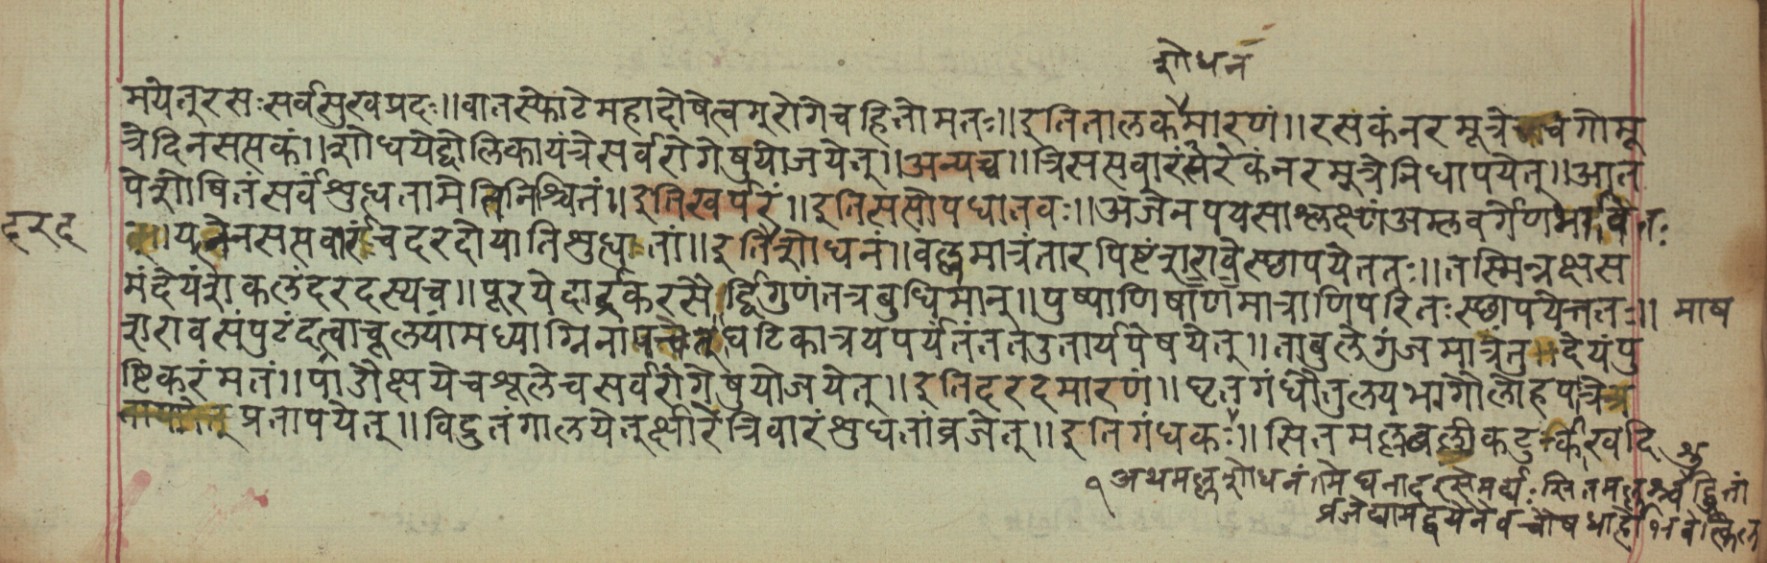 शोधनं
मयेतुरसःसर्वसुखप्रदः॥वातस्फोटेमहादोषेत्वग्रोगेचहितोमतः॥इतितालकमारणं॥रसकंनरमूत्रे गोमू
त्रेदिनसप्तकं॥शोधयेद्दोलिकायंत्रेसर्वरोगेषुयोजयेत्॥अन्यच्च॥त्रिसप्तवारं नरमूत्रेनिधापयेत्॥आत
पेशोषितंसर्वंशुध्यतामेतिनिश्चितं॥इतिखर्परं॥इतिसप्तोपधातवः॥अजेनपयसाश्लक्ष्णंअम्लवर्गेणभावितः
दरद
सप्तवारंचदरदोयातिशुध्यतां॥इतिशोधनं॥वल्लमात्रंतारपिष्टंशरावेस्छापयेततः॥तस्मिन्नक्षस
मंदेयंशकलंदरदस्यच॥पूरयेदार्द्रकरसैर्द्विगुणंतत्रबुधिमान्॥पुष्पाणि मात्राणिपरितःस्छापयेत्ततः॥ माष
शरावसंपुटंदत्वाचूलयांमध्याग्निनापचेत्घटिकात्रयपर्यंतंततउतार्यपेषयेत्॥तांबुलेगुंजमात्रंतु॥देयंपु
ष्टिकरंमतं॥पांडौक्षयेचशूलेचसर्वरोगेषुयोजयेत्॥इतिदरदमारणं॥घृतगंधौतुल्यभागौलोहपात्रे
प्रतापयेत्॥विद्रुतंगालयेत्क्षीरेत्रिवारंशुधतांव्रजेत्॥इतिगंधकः॥सितमल्ल
१ अथमल्लशोधनं मेघनादरसे सितमल्ल
व्रजेद्यामद्वयेनैव